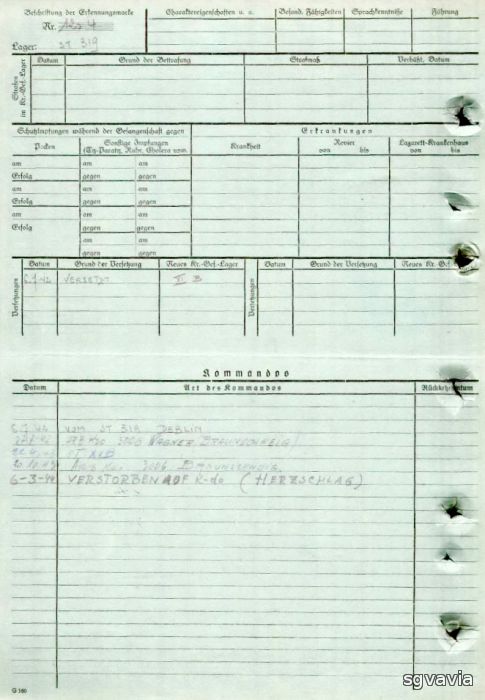 Beschriftung der Erkennungsmarke
Nr.
Lager: ST 319
Charaktereigenschaften u. a.
Besond. Fähigkeiten
Sprachkenntnisse
Führung
Strafen im Kr.-Gef.-Lager
Datum
Grund der Bestrafung
Strafmaß
Verbüßt, Datum
Schutzimpfungen während der Gefangenschaft gegen
Pocken
Sonstige Impfungen
(Ty.-Paratyph., Ruhr, Cholera usw.)
am am am
Erfolg gegen gegen
am am am
Erfolg gegen gegen
am am am
Erfolg gegen gegen
am am
gegen gegen
Erkrankungen
Krankheit
Revier
von bis
Lazarett-Krankenhaus
von bis
Versetzungen
Datum
Grund der Versetzung
Neues Kr.-Gef.-Lager
VERSETZT B
Versetzungen
Datum
Grund der Versetzung
Neues Kr.-Gef.
Kommandos
Datum
Art des Kommandos
Rückkehrdatum
VOM ST 319 DEBLIN
WAGNER BRAUNSCHWEIG
3006 BRAUNSCHWEIG
6-3-44 VERSTORBEN AUF K-do (HERZSCHLAG)
sgvavia